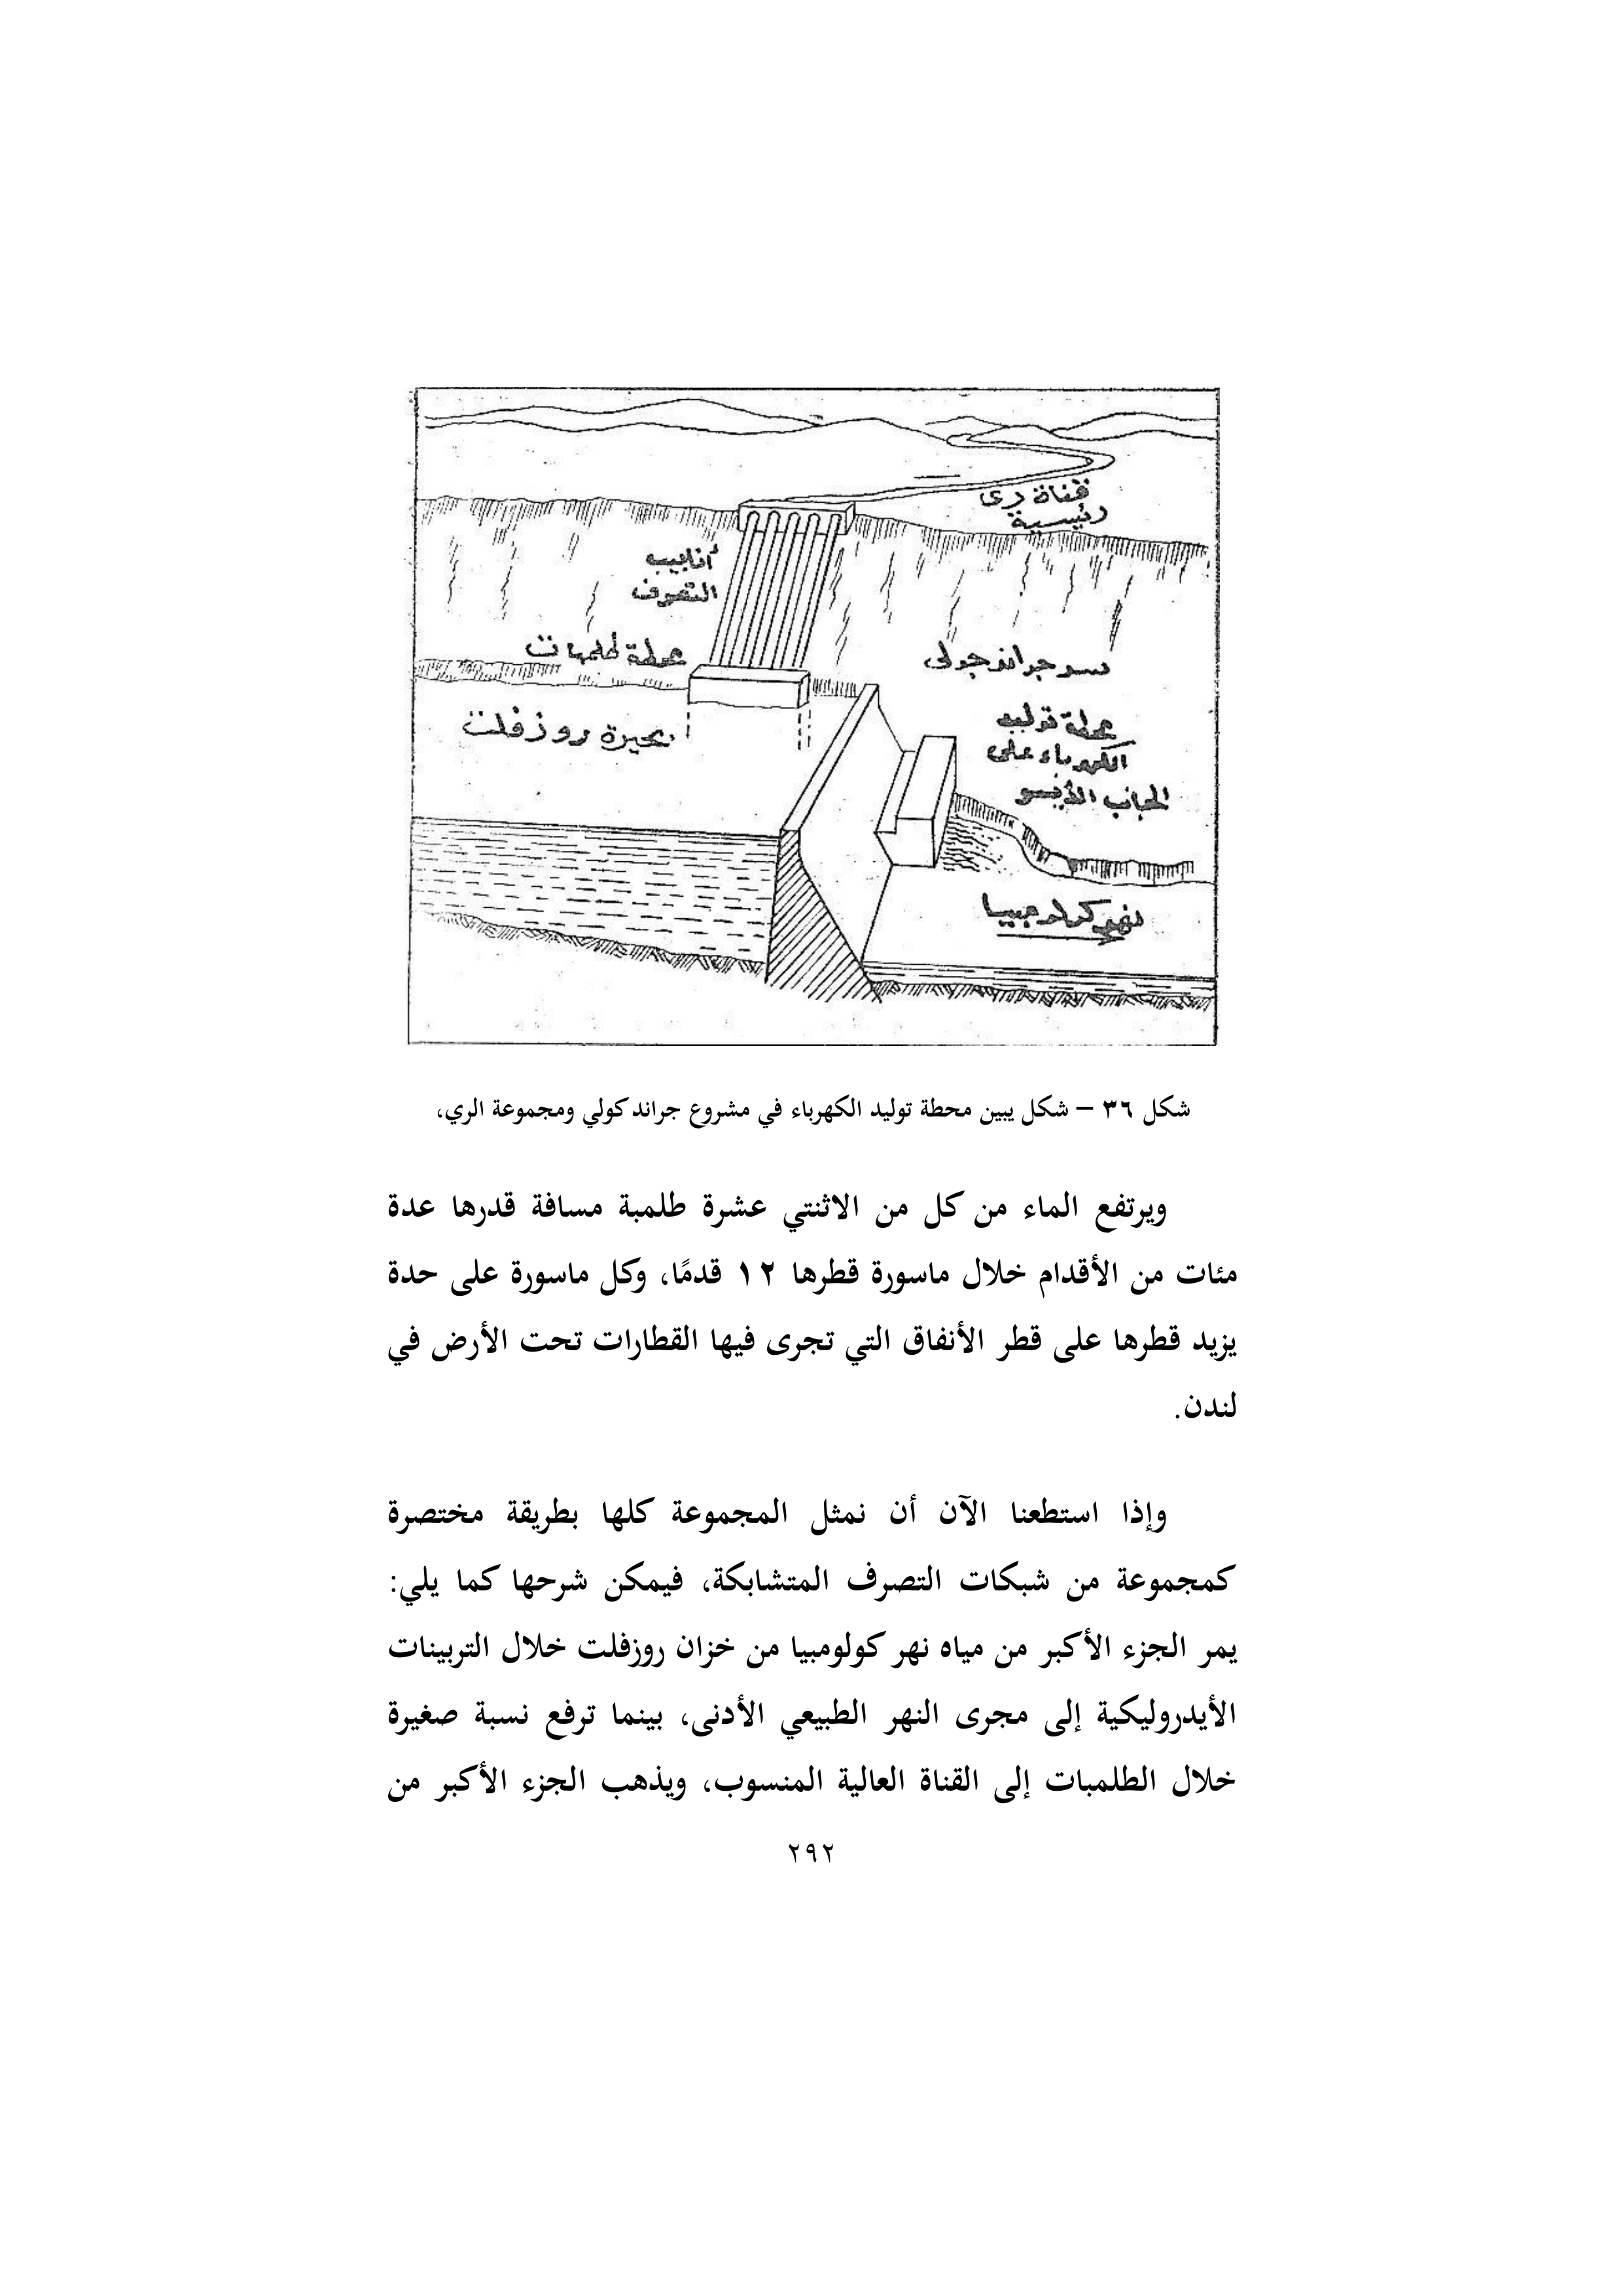 قناة رى
رئيسية
أنابيب
التصرف
محطة طلمبات
سد جراند جولى
بحيرة روزفلت
محطة توليد
الكهرباء على
الجانب الأيسر
نهر كولومبيا
شكل ٣٦ – شكل يبين محطة توليد الكهرباء في مشروع جراند كولي ومجموعة الري،
ويرتفع الماء من كل من الاثنتي عشرة طلمبة مسافة قدرها عدة
مئات من الأقدام خلال ماسورة قطرها ١٢ قدمًا، وكل ماسورة على حدة
يزيد قطرها على قطر الأنفاق التي تجرى فيها القطارات تحت الأرض في
لندن.
وإذا استطعنا الآن أن نمثل المجموعة كلها بطريقة مختصرة
كمجموعة من شبكات التصرف المتشابكة، فيمكن شرحها كما يلي:
يمر الجزء الأكبر من مياه نهر كولومبيا من خزان روزفلت خلال التربينات
الأيدروليكية إلى مجرى النهر الطبيعي الأدنى، بينما ترفع نسبة صغيرة
خلال الطلمبات إلى القناة العالية المنسوب، ويذهب الجزء الأكبر من
٢٩٢